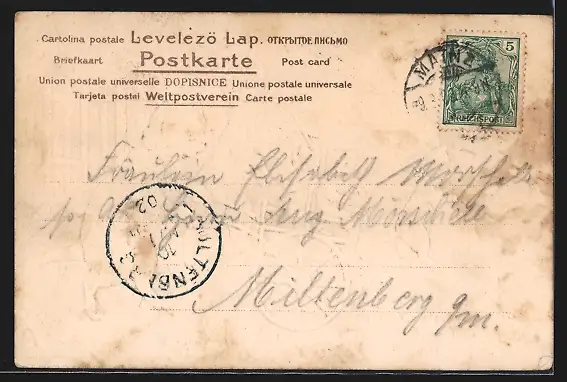 Cartolina postale Levelező Lap. ОТКРЫТОЕ ПИСЬМО
Briefkaart Postkarte Post card
Union postale universelle DOPISNICE Unione postale universale
Tarjeta postal Weltpostverein Carte postale
5
MAINZ
REICHSPOST
Fräulein Elisabeth
Miltenberg a/m.
MILTENBERG
02
10